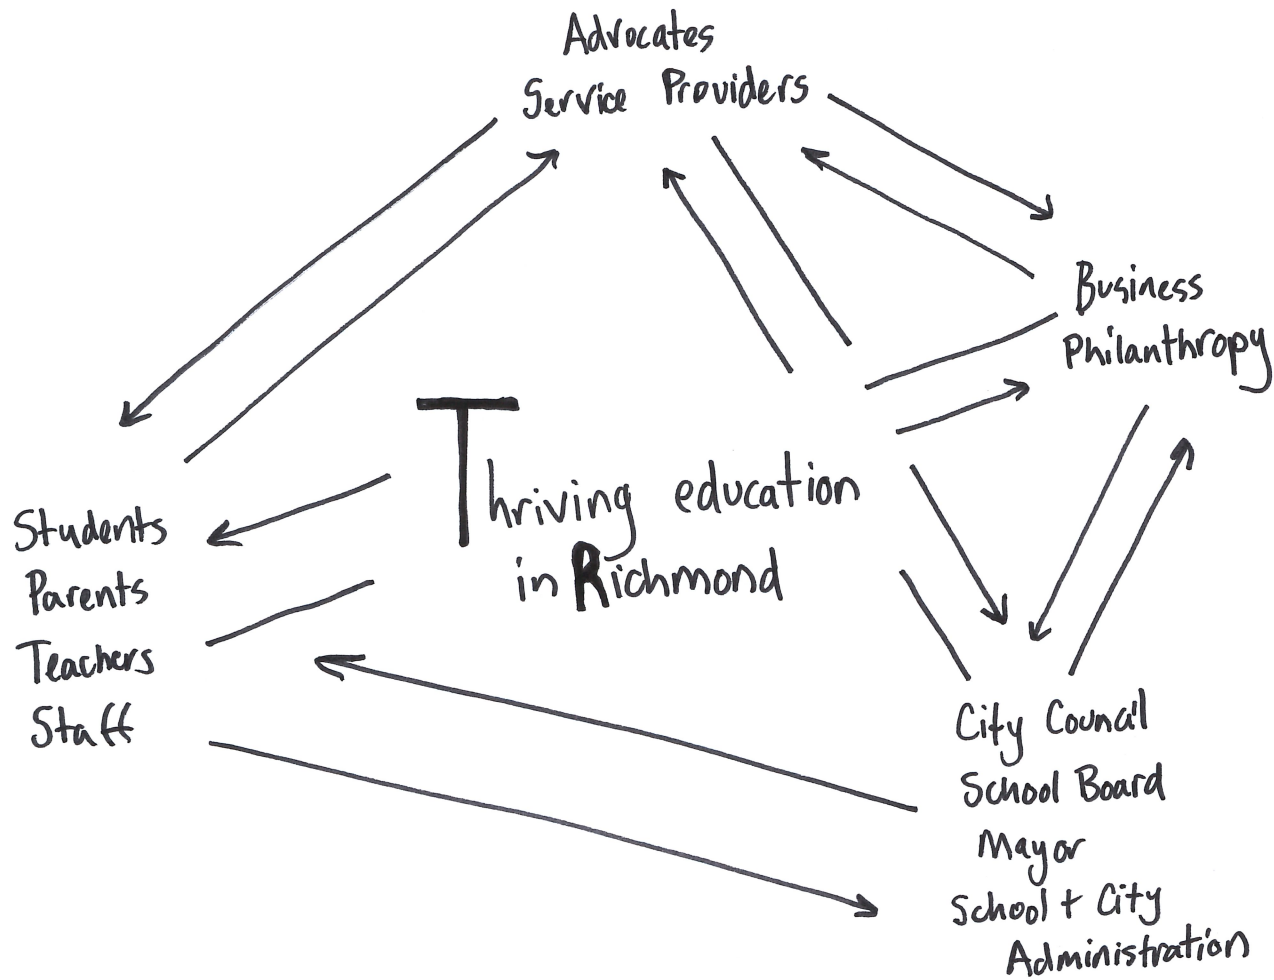 Advocates
Service Providers
Business
Philanthropy
Thriving education
in Richmond
Students
Parents
Teachers
Staff
City Council
School Board
Mayor
School + City
Administration